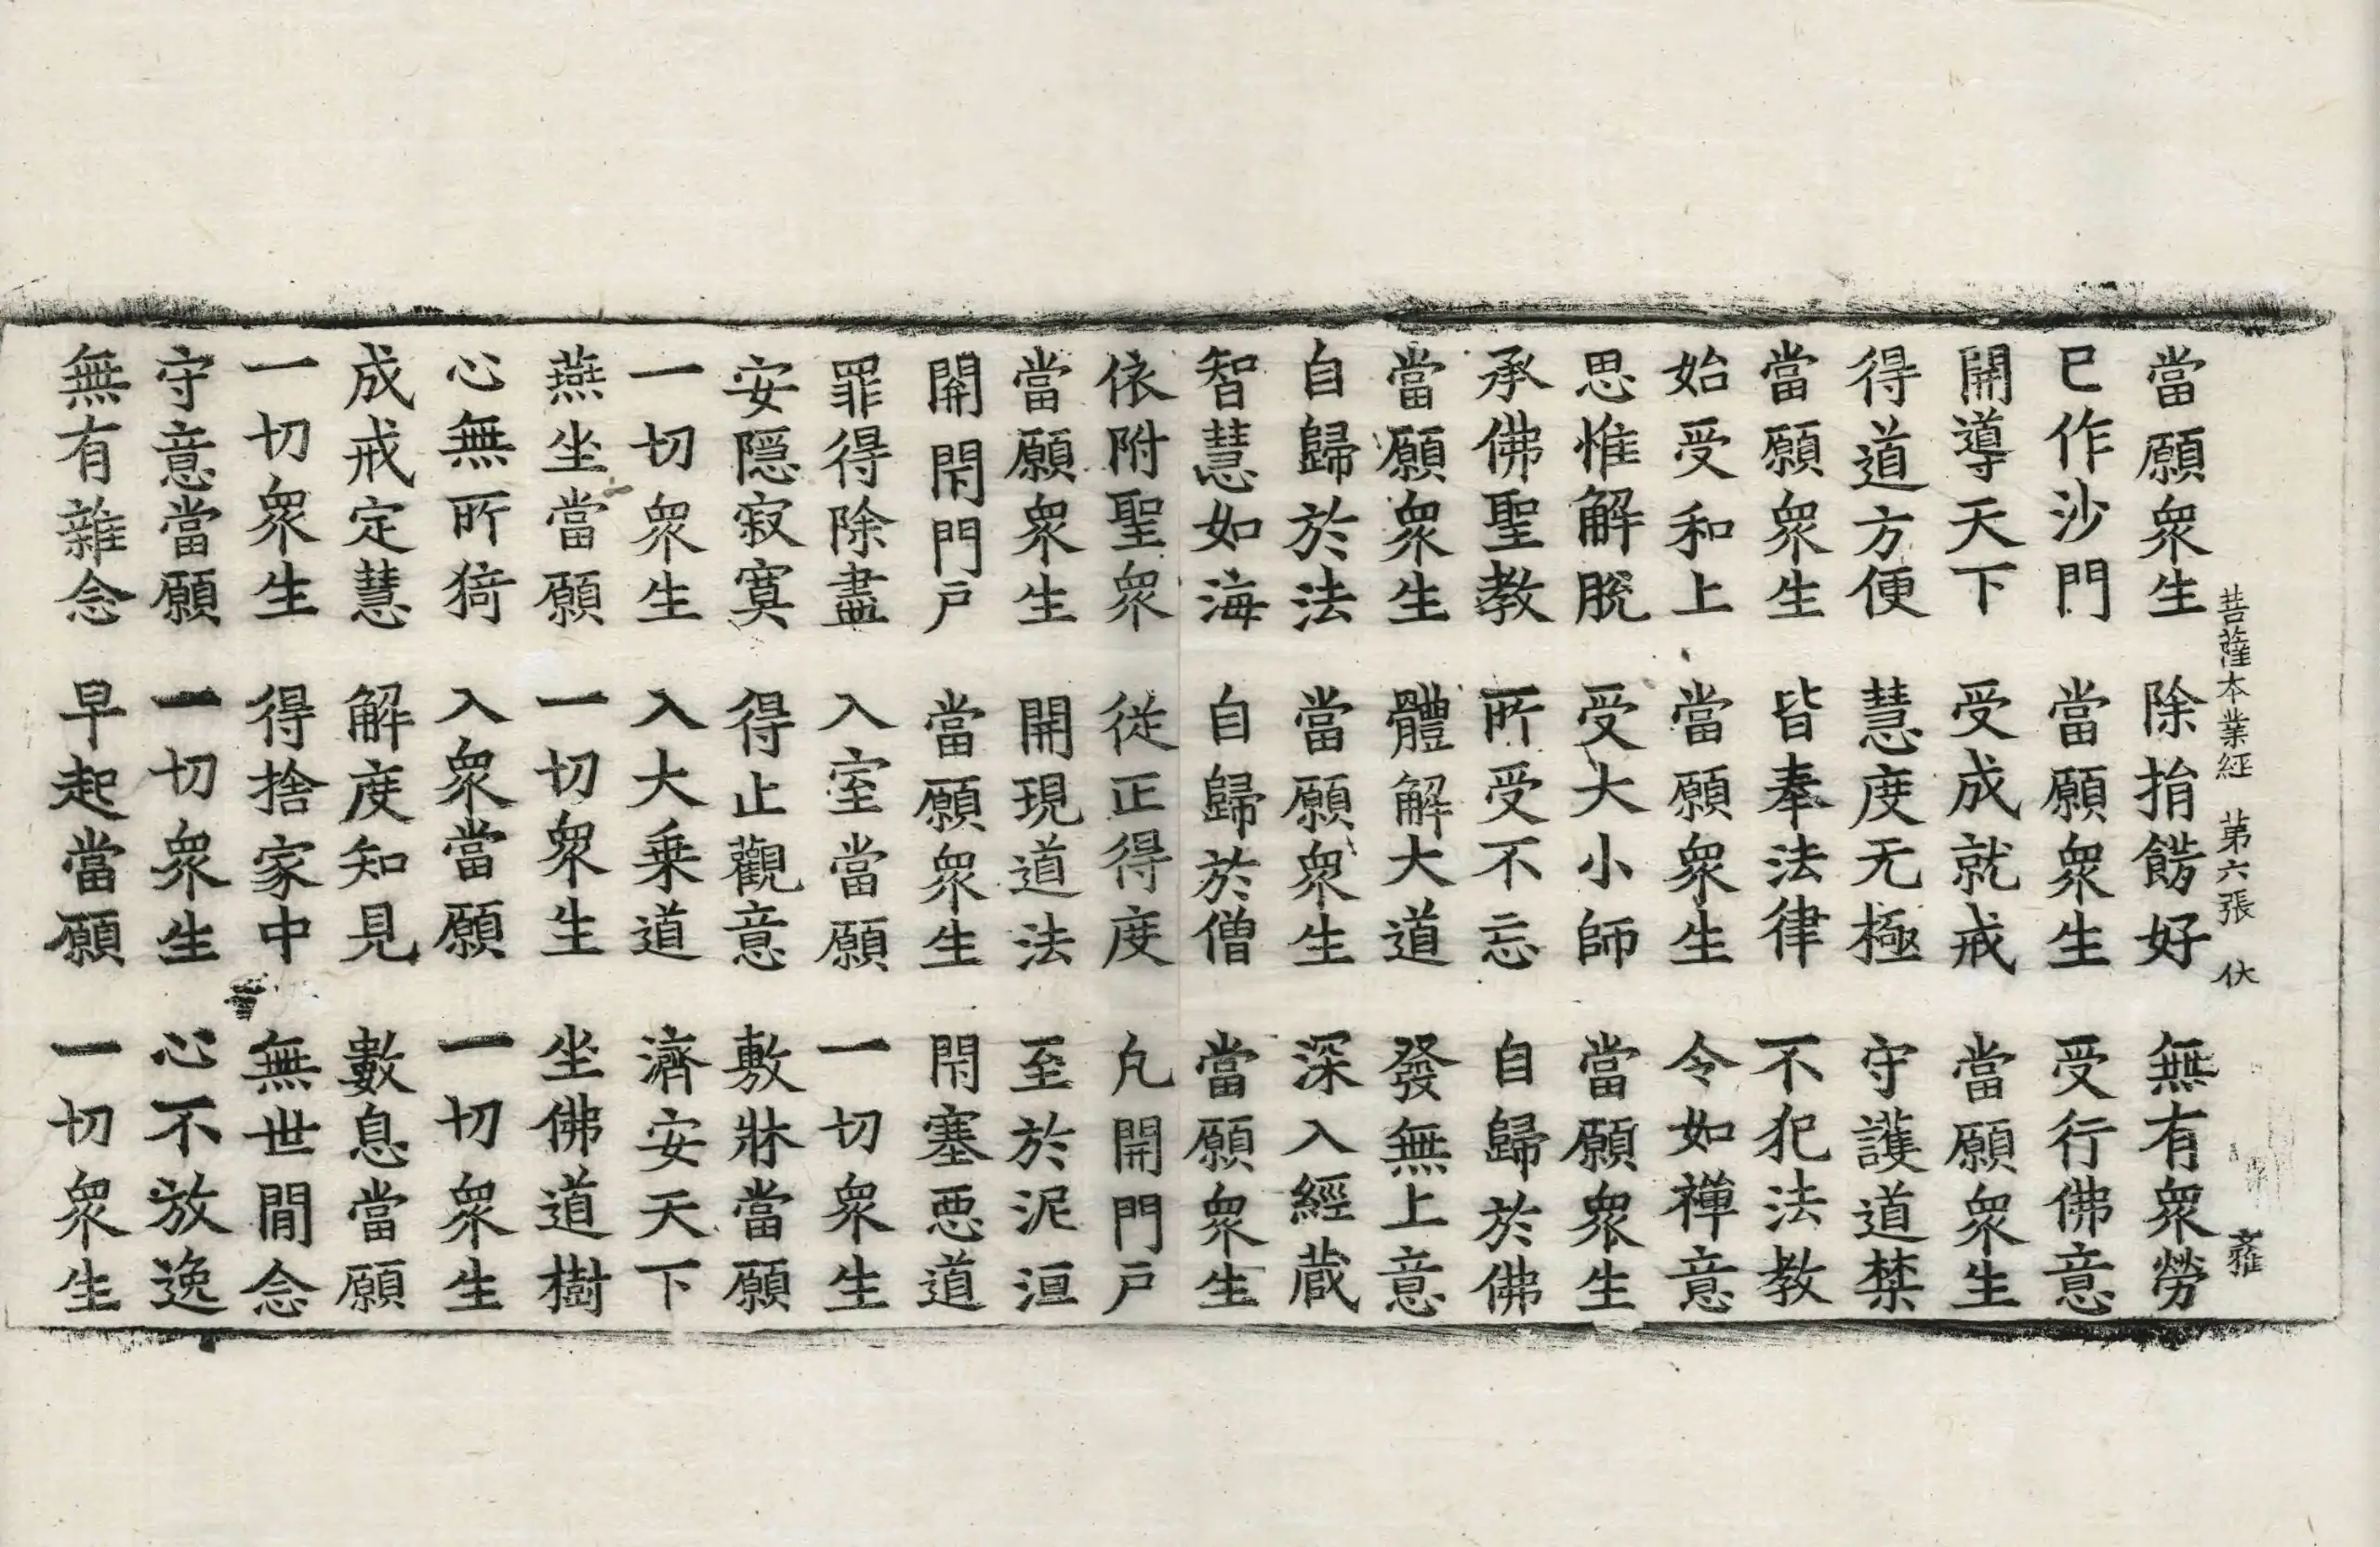 菩薩本業経 第六張 伏
當願衆生 除捐餝好 無有衆勞
已作沙門 當願衆生 受行佛意
開導天下 受成就戒 當願衆生
得道方便 慧度无極 守護道禁
當願衆生 皆奉法律 不犯法教
始受和上 當願衆生 令如禪意
思惟解脫 受大小師 當願衆生
承佛聖教 所受不忘 自歸於佛
當願衆生 體解大道 發無上意
自歸於法 當願衆生 深入經蔵
智慧如海 自歸於僧 當願衆生
依附聖衆 從正得度 凡開門戶
當願衆生 開現道法 至於泥洹
開閇門戶 當願衆生 閇塞惡道
罪得除盡 入室當願 一切衆生
安隠寂寞 得止觀意 敷牀當願
一切衆生 入大乗道 濟安天下
燕坐當願 一切衆生 坐佛道樹
心無所猗 入衆當願 一切衆生
成戒定慧 解度知見 數息當願
一切衆生 得捨家中 無世閒念
守意當願 一切衆生 心不放逸
無有雜念 早起當願 一切衆生